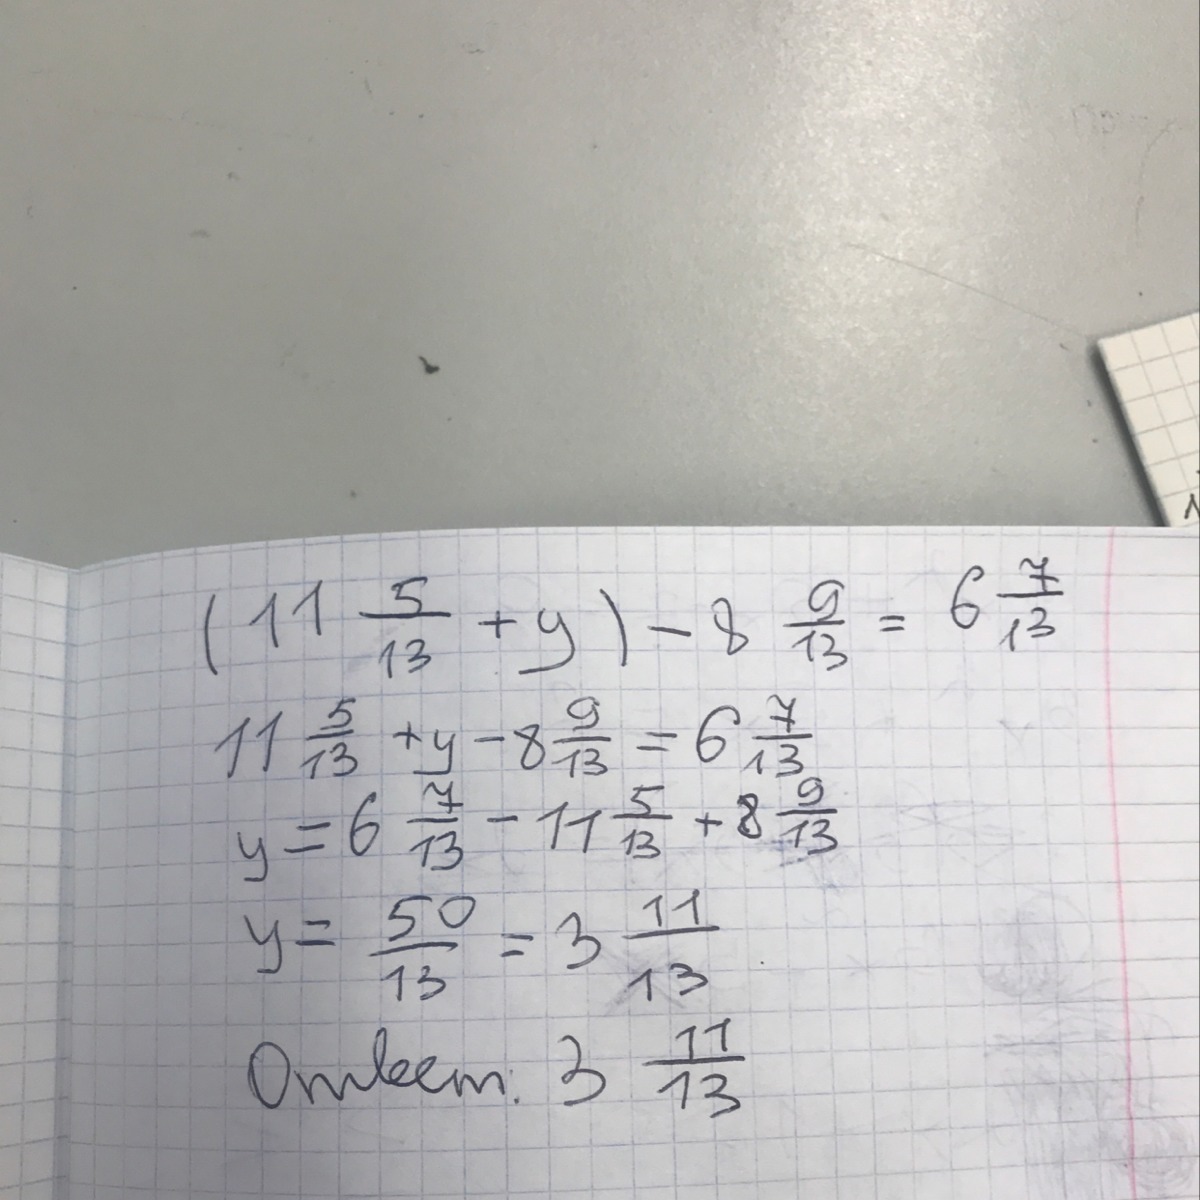 (11 5/13 + y) - 8 9/13 = 6 7/13
11 5/13 + y - 8 9/13 = 6 7/13
y = 6 7/13 - 11 5/13 + 8 9/13
y = 50/13 = 3 11/13
Ответ: 3 11/13